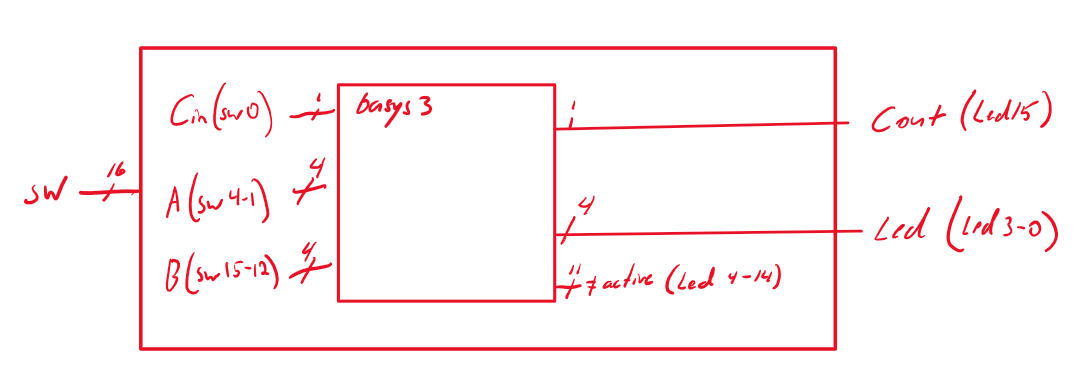 sw 16
Cin(sw0) 1
A(sw4-1) 4
B(sw15-12) 4
basys3
1 Cout (Led15)
4 Led (Led3-0)
11 ≠ active (Led 4-14)